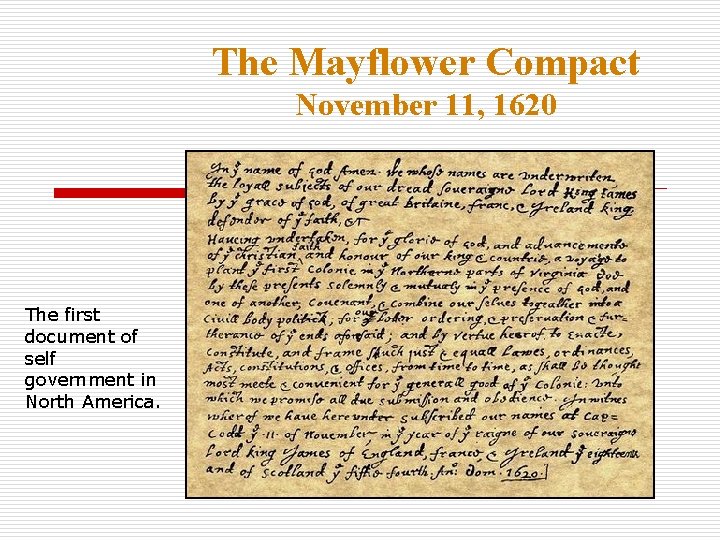 The Mayflower Compact
November 11, 1620
The first
document of
self
government in
North America.
In yͤ name of god Amen. We whose names are underwriten,
the loyall subjects of our dread soveraigne Lord King James
by yͤ grace of god, of great Britaine, franc, & Ireland king,
defender of yͤ faith, &c
Haveing undertaken, for yͤ glorie of god, and advancemente
of yͤ christian faith and honour of our king & countrie, a voyage to
plant yͤ first colonie in yͤ Northerne parts of Virginia Doe
by these presents solemnly & mutualy in yͤ presence of god, and
one of another, covenant, & combine our selves togeather into a
Civill body politick; for our better ordering, & preservation & fur=
therance of yͤ ends aforesaid; and by vertue hearof to enacte,
constitute, and frame such just & equall Lawes, ordinances,
Acts, constitutions, & offices, from time to time, as shall be thought
most meete & convenient for yͤ generall good of yͤ Colonie: unto
which we promise all due submission and obedience. In witnes
wherof we have hereunder subscribed our names at Cap=
Codd yͤ .11. of November, in yͤ year of yͤ raigne of our soveraigne
Lord king James of England, france, & Ireland yͤ eighteenth
and of Scotland yͤ fiftie fourth. Anº: Dom. 1620.]